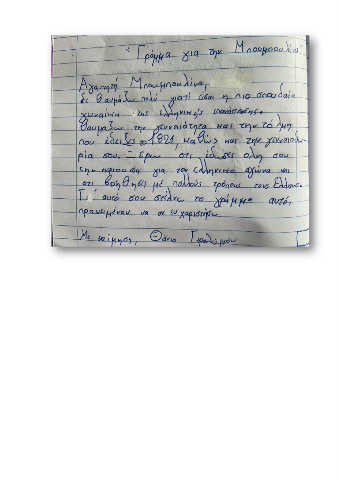 Γράμμα για την Μπουμπουλίνα
Αγαπητή Μπουμπουλίνα,
σε θαυμάζω πολύ γιατί είσαι η πιο σπουδαία
γυναίκα της ελληνικής επανάστασης.
Θαυμάζω την γενναιότητα και την τόλμη
που έδειξες το 1821, καθώς και την γενναιοδω-
ρία σου. Ξέρω ότι έδωσες όλη σου
την περιουσία για τον ελληνικό αγώνα και
ότι βοήθησες με πολλούς τρόπους τους Έλληνες.
Γι' αυτό σου στέλνω το γράμμα αυτό,
προκειμένου να σε ευχαριστήσω.
Με εκτίμηση,